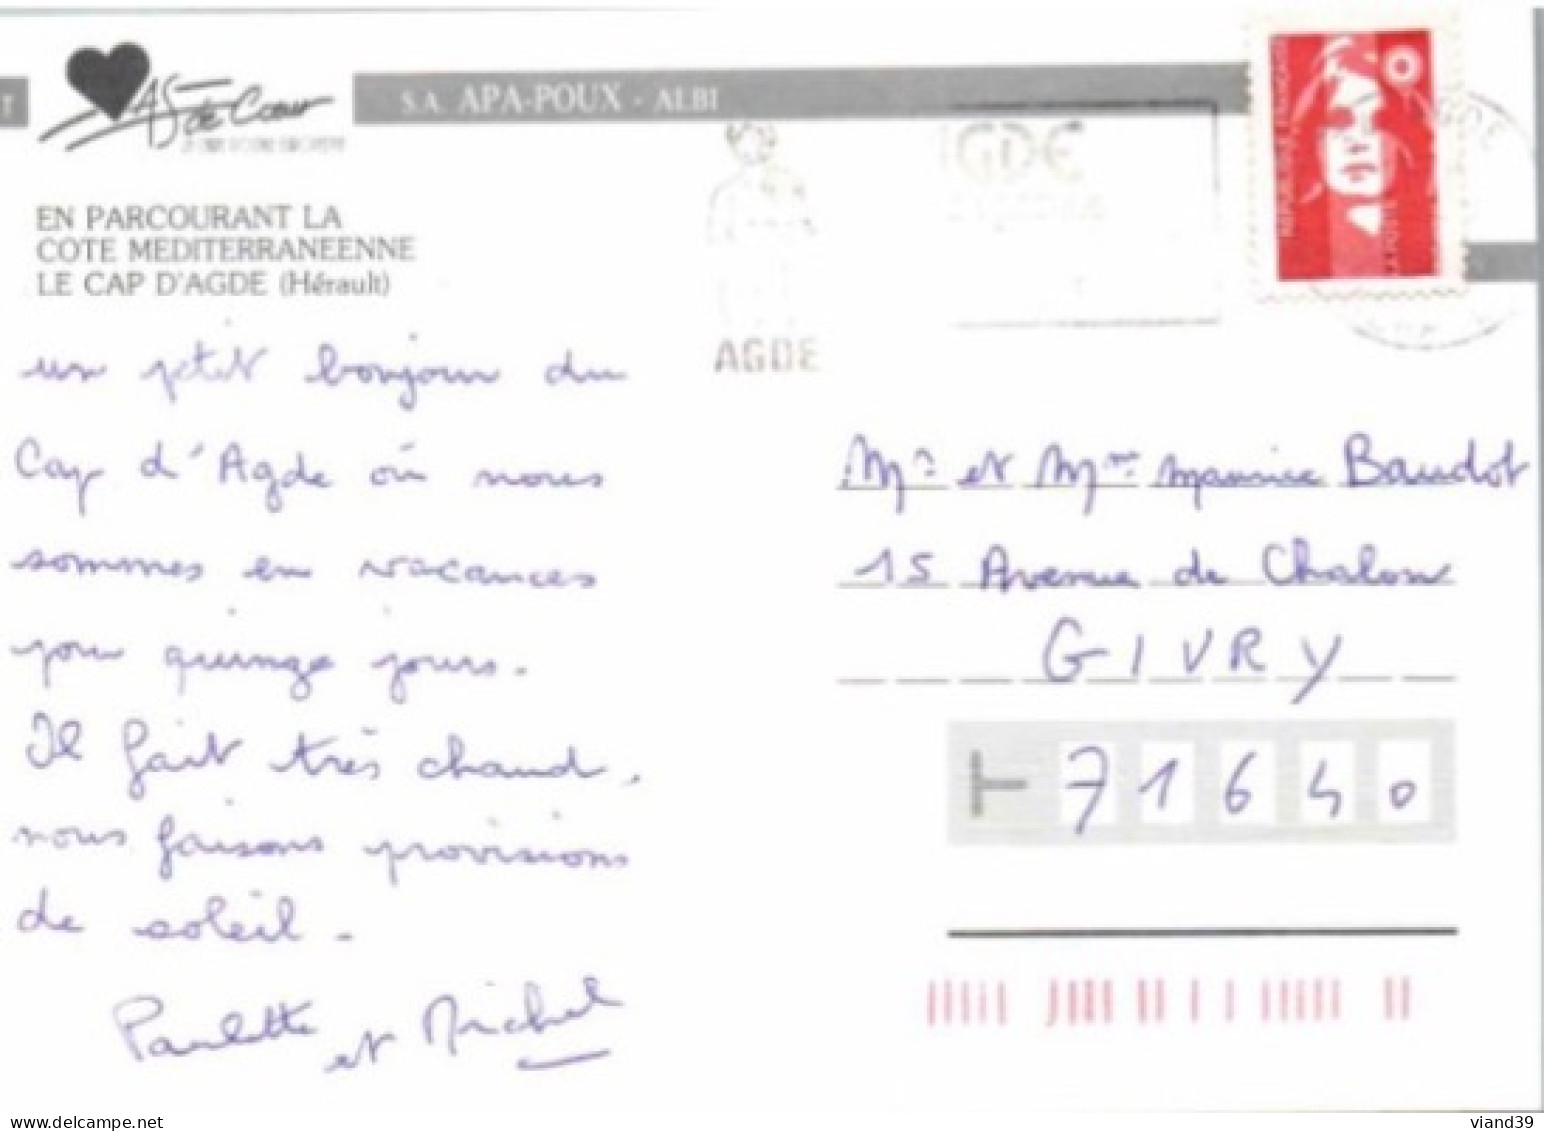 T
AS de Cœur
S.A. APA-POUX - ALBI
EN PARCOURANT LA
COTE MEDITERRANEENNE
LE CAP D'AGDE (Hérault)
AGDE
REPUBLIQUE FRANÇAISE
LA POSTE
AGDE
un ptit bonjour du
Cap d'Agde où nous
sommes en vacances
pour quinze jours.
Il fait très chaud,
nous faisons provisions
de soleil.
Paulette et Michel
Mr et Mme Maurice Baudot
15 Avenue de Chalon
GIVRY
71640
viand39